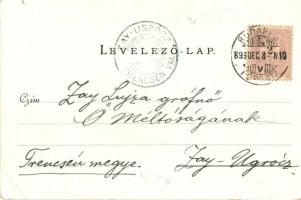 ZAY-UGRÓCZ
TRENCSÉN
BUDAPEST
899 DEC. 8 N10
V
LEVELEZŐ-LAP.
Czim Zay Lujza grófnő
Ő Méltóságának
Trencsén megye. Zay-Ugrócz